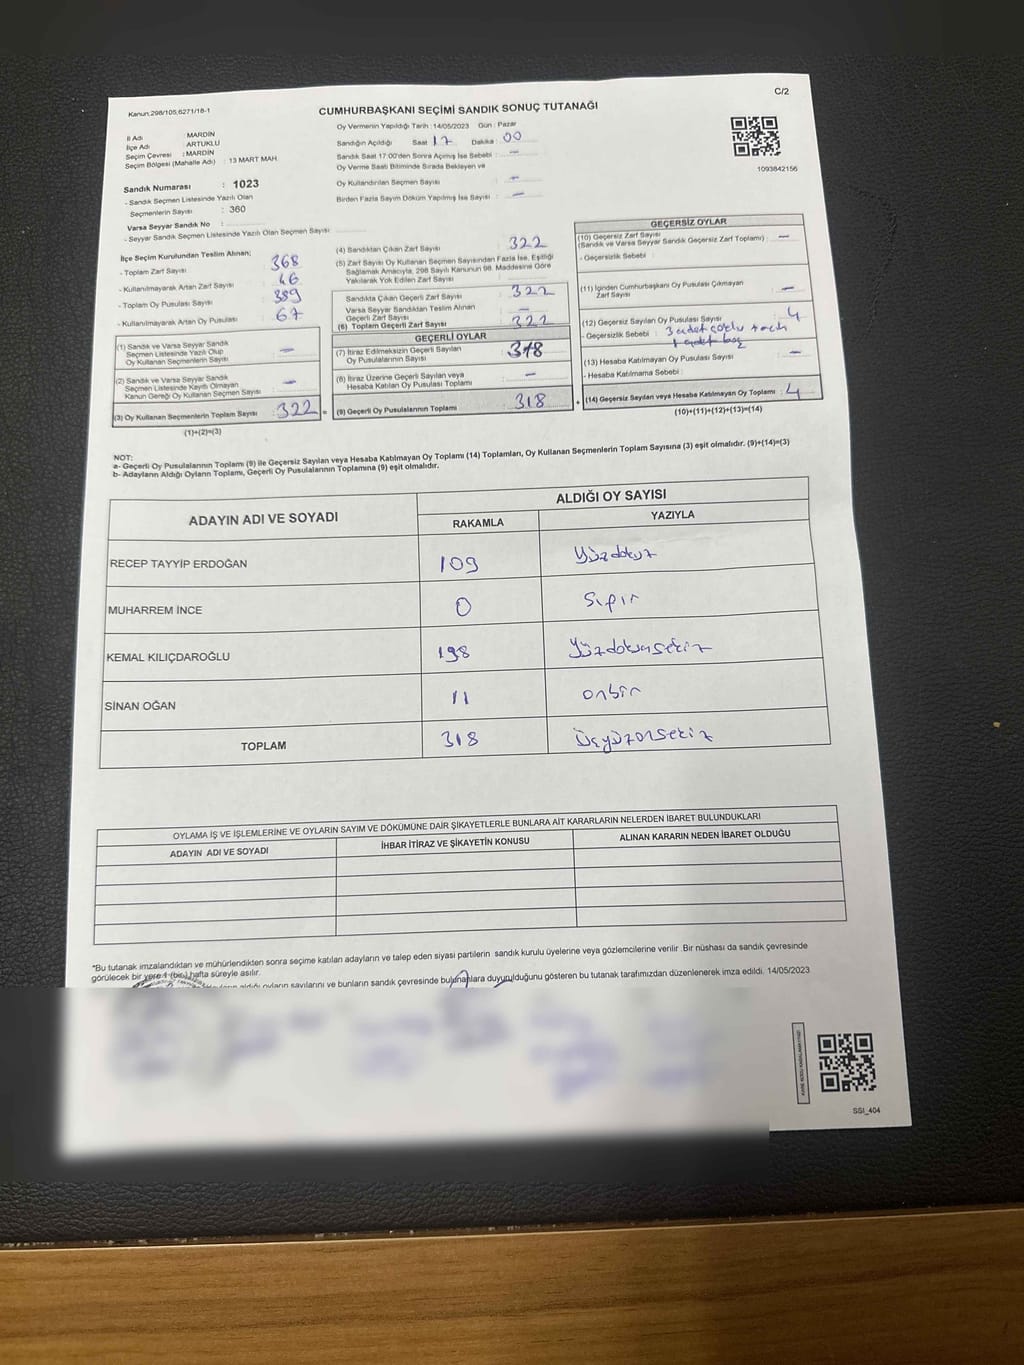 C/2
Kanun.298/105,6271/18-1
CUMHURBAŞKANI SEÇİMİ SANDIK SONUÇ TUTANAĞI
İl Adı : MARDİN
İlçe Adı : ARTUKLU
Seçim Çevresi : MARDİN
Seçim Bölgesi (Mahalle Adı) : 13 MART MAH.
Sandık Numarası : 1023
- Sandık Seçmen Listesinde Yazılı Olan
Seçmenlerin Sayısı : 360
Varsa Seyyar Sandık No :
- Seyyar Sandık Seçmen Listesinde Yazılı Olan Seçmen Sayısı :
Oy Vermenin Yapıldığı Tarih : 14/05/2023 Gün : Pazar
Sandığın Açıldığı Saat 17 Dakika : 00
Sandık Saat 17:00'den Sonra Açımış İse Sebebi : —
Oy Verme Saati Bitiminde Sırada Bekleyen ve
Oy Kullandırılan Seçmen Sayısı : —
Birden Fazla Sayım Döküm Yapılmış İse Sayısı : —
1093842156
İlçe Seçim Kurulundan Teslim Alınan;
- Toplam Zarf Sayısı : 368
- Kullanılmayarak Artan Zarf Sayısı : 46
- Toplam Oy Pusulası Sayısı : 389
- Kullanılmayarak Artan Oy Pusulası : 67
(1) Sandık ve Varsa Seyyar Sandık
Seçmen Listesinde Yazılı Olup
Oy Kullanan Seçmenlerin Sayısı : —
(2) Sandık ve Varsa Seyyar Sandık
Seçmen Listesinde Kayıtlı Olmayan
Kanun Gereği Oy Kullanan Seçmen Sayısı : —
(3) Oy Kullanan Seçmenlerin Toplam Sayısı : 322 =
(1)+(2)=(3)
(4) Sandıktan Çıkan Zarf Sayısı : 322
(5) Zarf Sayısı Oy Kullanan Seçmen Sayısından Fazla İse, Eşitliği
Sağlamak Amacıyla, 298 Sayılı Kanunun 98. Maddesine Göre
Yakılarak Yok Edilen Zarf Sayısı :
Sandıkta Çıkan Geçerli Zarf Sayısı : 322
Varsa Seyyar Sandıktan Teslim Alınan
Geçerli Zarf Sayısı : —
(6) Toplam Geçerli Zarf Sayısı : 322
GEÇERLİ OYLAR
(7) İtiraz Edilmeksizin Geçerli Sayılan
Oy Pusulalarının Sayısı : 318
(8) İtiraz Üzerine Geçerli Sayılan veya
Hesaba Katılan Oy Pusulası Toplamı : —
(9) Geçerli Oy Pusulalarının Toplamı : 318 +
GEÇERSİZ OYLAR
(10) Geçersiz Zarf Sayısı
(Sandık ve Varsa Seyyar Sandık Geçersiz Zarf Toplamı) : —
- Geçersizlik Sebebi :
(11) İçinden Cumhurbaşkanı Oy Pusulası Çıkmayan
Zarf Sayısı : —
(12) Geçersiz Sayılan Oy Pusulası Sayısı : 4
- Geçersizlik Sebebi : 3 adet çoklu
1 adet boş
(13) Hesaba Katılmayan Oy Pusulası Sayısı : —
- Hesaba Katılmama Sebebi :
(14) Geçersiz Sayılan veya Hesaba Katılmayan Oy Toplamı : 4
(10)+(11)+(12)+(13)=(14)
NOT:
a- Geçerli Oy Pusulalarının Toplamı (9) ile Geçersiz Sayılan veya Hesaba Katılmayan Oy Toplamı (14) Toplamları, Oy Kullanan Seçmenlerin Toplam Sayısına (3) eşit olmalıdır. (9)+(14)=(3)
b- Adayların Aldığı Oyların Toplamı, Geçerli Oy Pusulalarının Toplamına (9) eşit olmalıdır.
ADAYIN ADI VE SOYADI
ALDIĞI OY SAYISI
RAKAMLA YAZIYLA
RECEP TAYYİP ERDOĞAN 109 Yüzdokuz
MUHARREM İNCE 0 Sıfır
KEMAL KILIÇDAROĞLU 198 Yüzdoksansekiz
SİNAN OĞAN 11 onbir
TOPLAM 318 Üçyüzonsekiz
OYLAMA İŞ VE İŞLEMLERİNE VE OYLARIN SAYIM VE DÖKÜMÜNE DAİR ŞİKAYETLERLE BUNLARA AİT KARARLARIN NELERDEN İBARET BULUNDUKLARI
ADAYIN ADI VE SOYADI İHBAR İTİRAZ VE ŞİKAYETİN KONUSU ALINAN KARARIN NEDEN İBARET OLDUĞU
*Bu tutanak imzalandıktan ve mühürlendikten sonra seçime katılan adayların ve talep eden siyasi partilerin sandık kurulu üyelerine veya gözlemcilerine verilir .Bir nüshası da sandık çevresinde
görülecek bir yere 1 (bir) hafta süreyle asılır.
aldığı oyların sayılarını ve bunların sandık çevresinde bulunanlara duyurulduğunu gösteren bu tutanak tarafımızdan düzenlenerek imza edildi. 14/05/2023
SSI_404